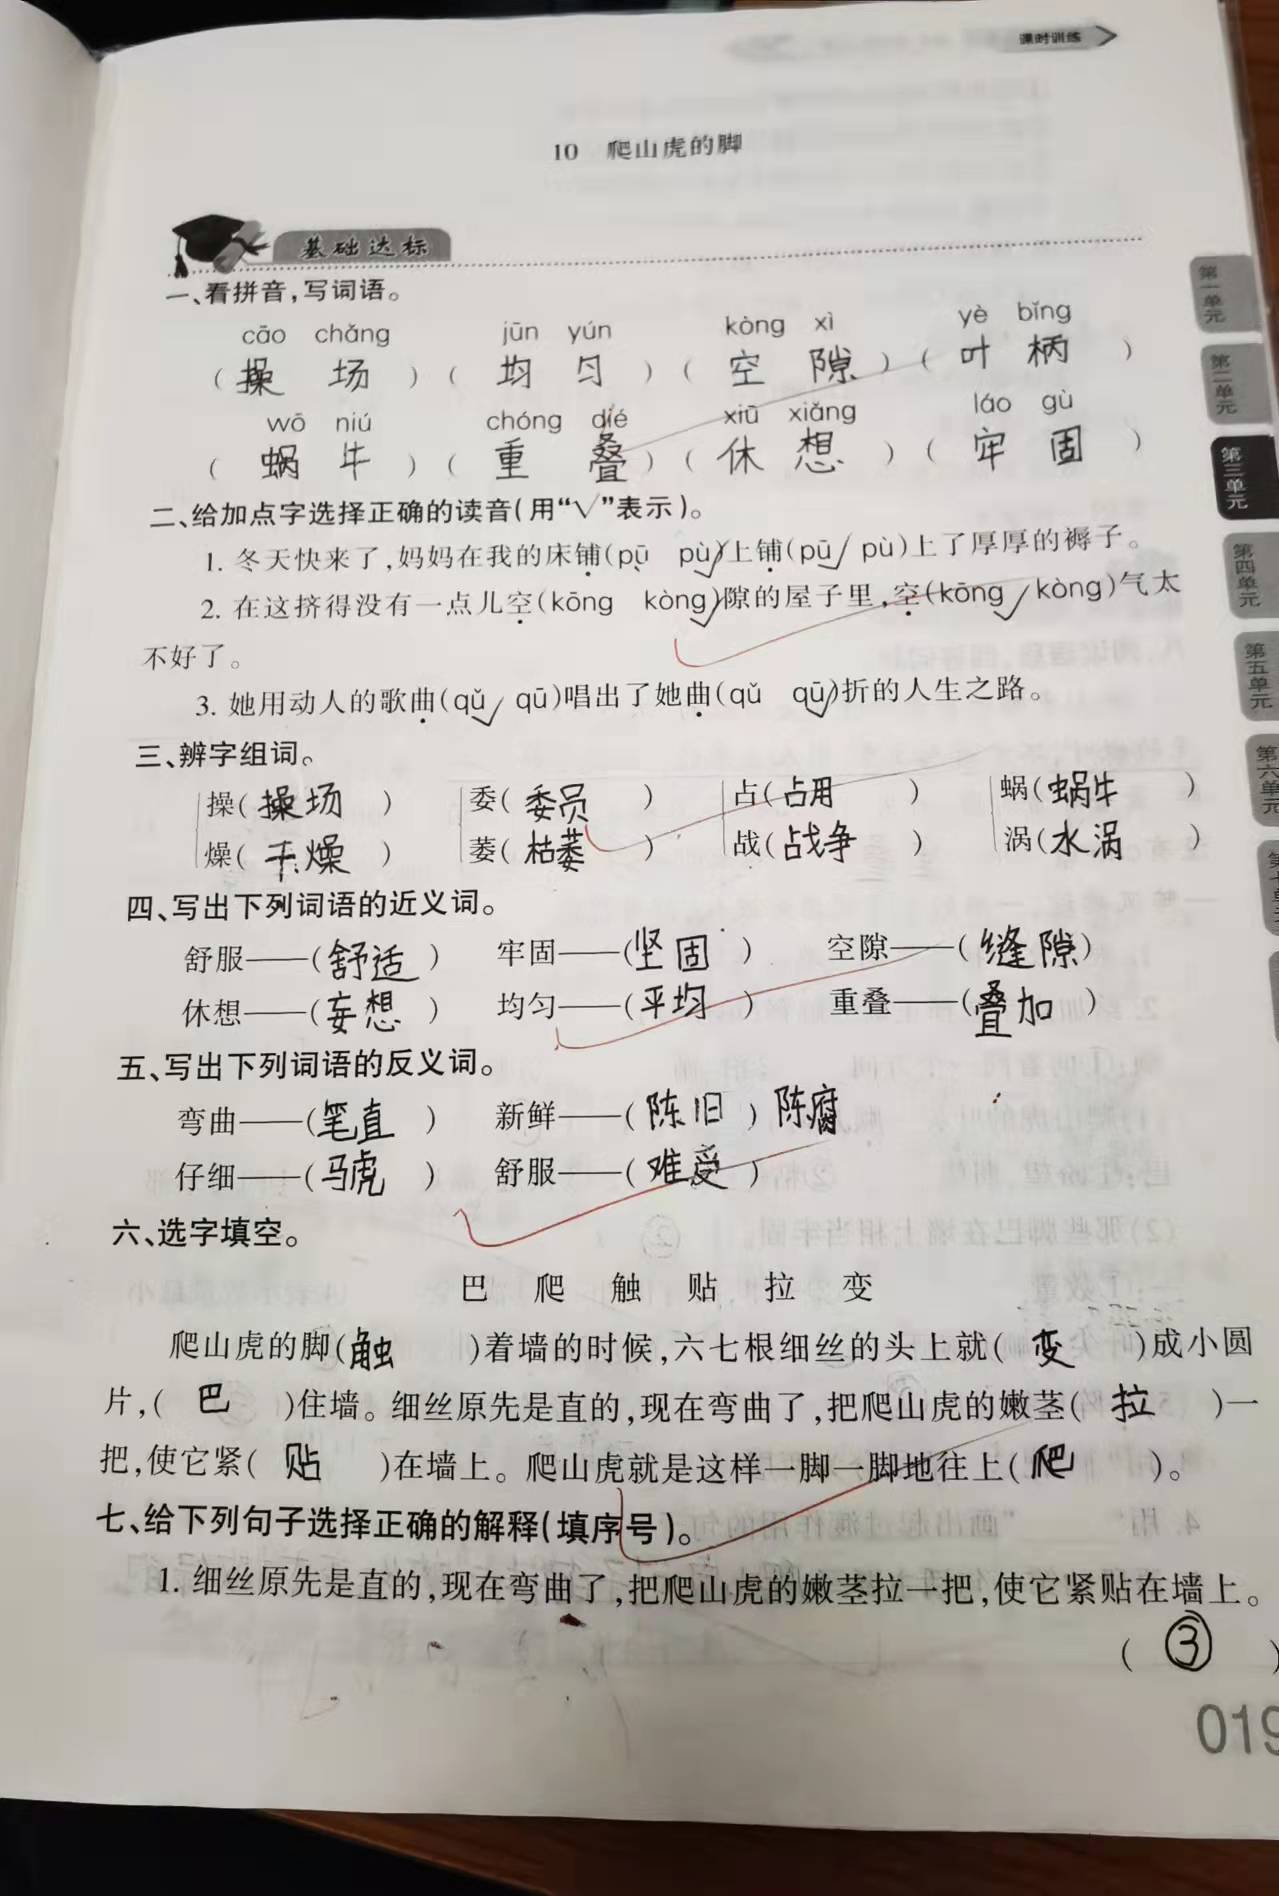 课时训练
10 爬山虎的脚
基础达标
一、看拼音,写词语。
cāo chǎng jūn yún kòng xì yè bǐng
(操 场)(均 匀)(空 隙)(叶 柄)
wō niú chóng dié xiū xiǎng láo gù
(蜗 牛)(重 叠)(休 想)(牢 固)
二、给加点字选择正确的读音(用“√”表示)。
1. 冬天快来了,妈妈在我的床铺(pū pù√)上铺(pū√ pù)上了厚厚的褥子。
2. 在这挤得没有一点儿空(kōng kòng√)隙的屋子里,空(kōng√ kòng)气太
不好了。
3. 她用动人的歌曲(qǔ√ qū)唱出了她曲(qǔ qū√)折的人生之路。
三、辨字组词。
操(操场) 委(委员) 占(占用) 蜗(蜗牛)
燥(干燥) 萎(枯萎) 战(战争) 涡(水涡)
四、写出下列词语的近义词。
舒服——(舒适) 牢固——(坚固) 空隙——(缝隙)
休想——(妄想) 均匀——(平均) 重叠——(叠加)
五、写出下列词语的反义词。
弯曲——(笔直) 新鲜——(陈旧) 陈腐
仔细——(马虎) 舒服——(难受)
六、选字填空。
巴 爬 触 贴 拉 变
爬山虎的脚(触)着墙的时候,六七根细丝的头上就(变)成小圆
片,(巴)住墙。细丝原先是直的,现在弯曲了,把爬山虎的嫩茎(拉)一
把,使它紧(贴)在墙上。爬山虎就是这样一脚一脚地往上(爬)。
七、给下列句子选择正确的解释(填序号)。
1. 细丝原先是直的,现在弯曲了,把爬山虎的嫩茎拉一把,使它紧贴在墙上。
(③)
019
第一单元
第二单元
第三单元
第四单元
第五单元
第六单元